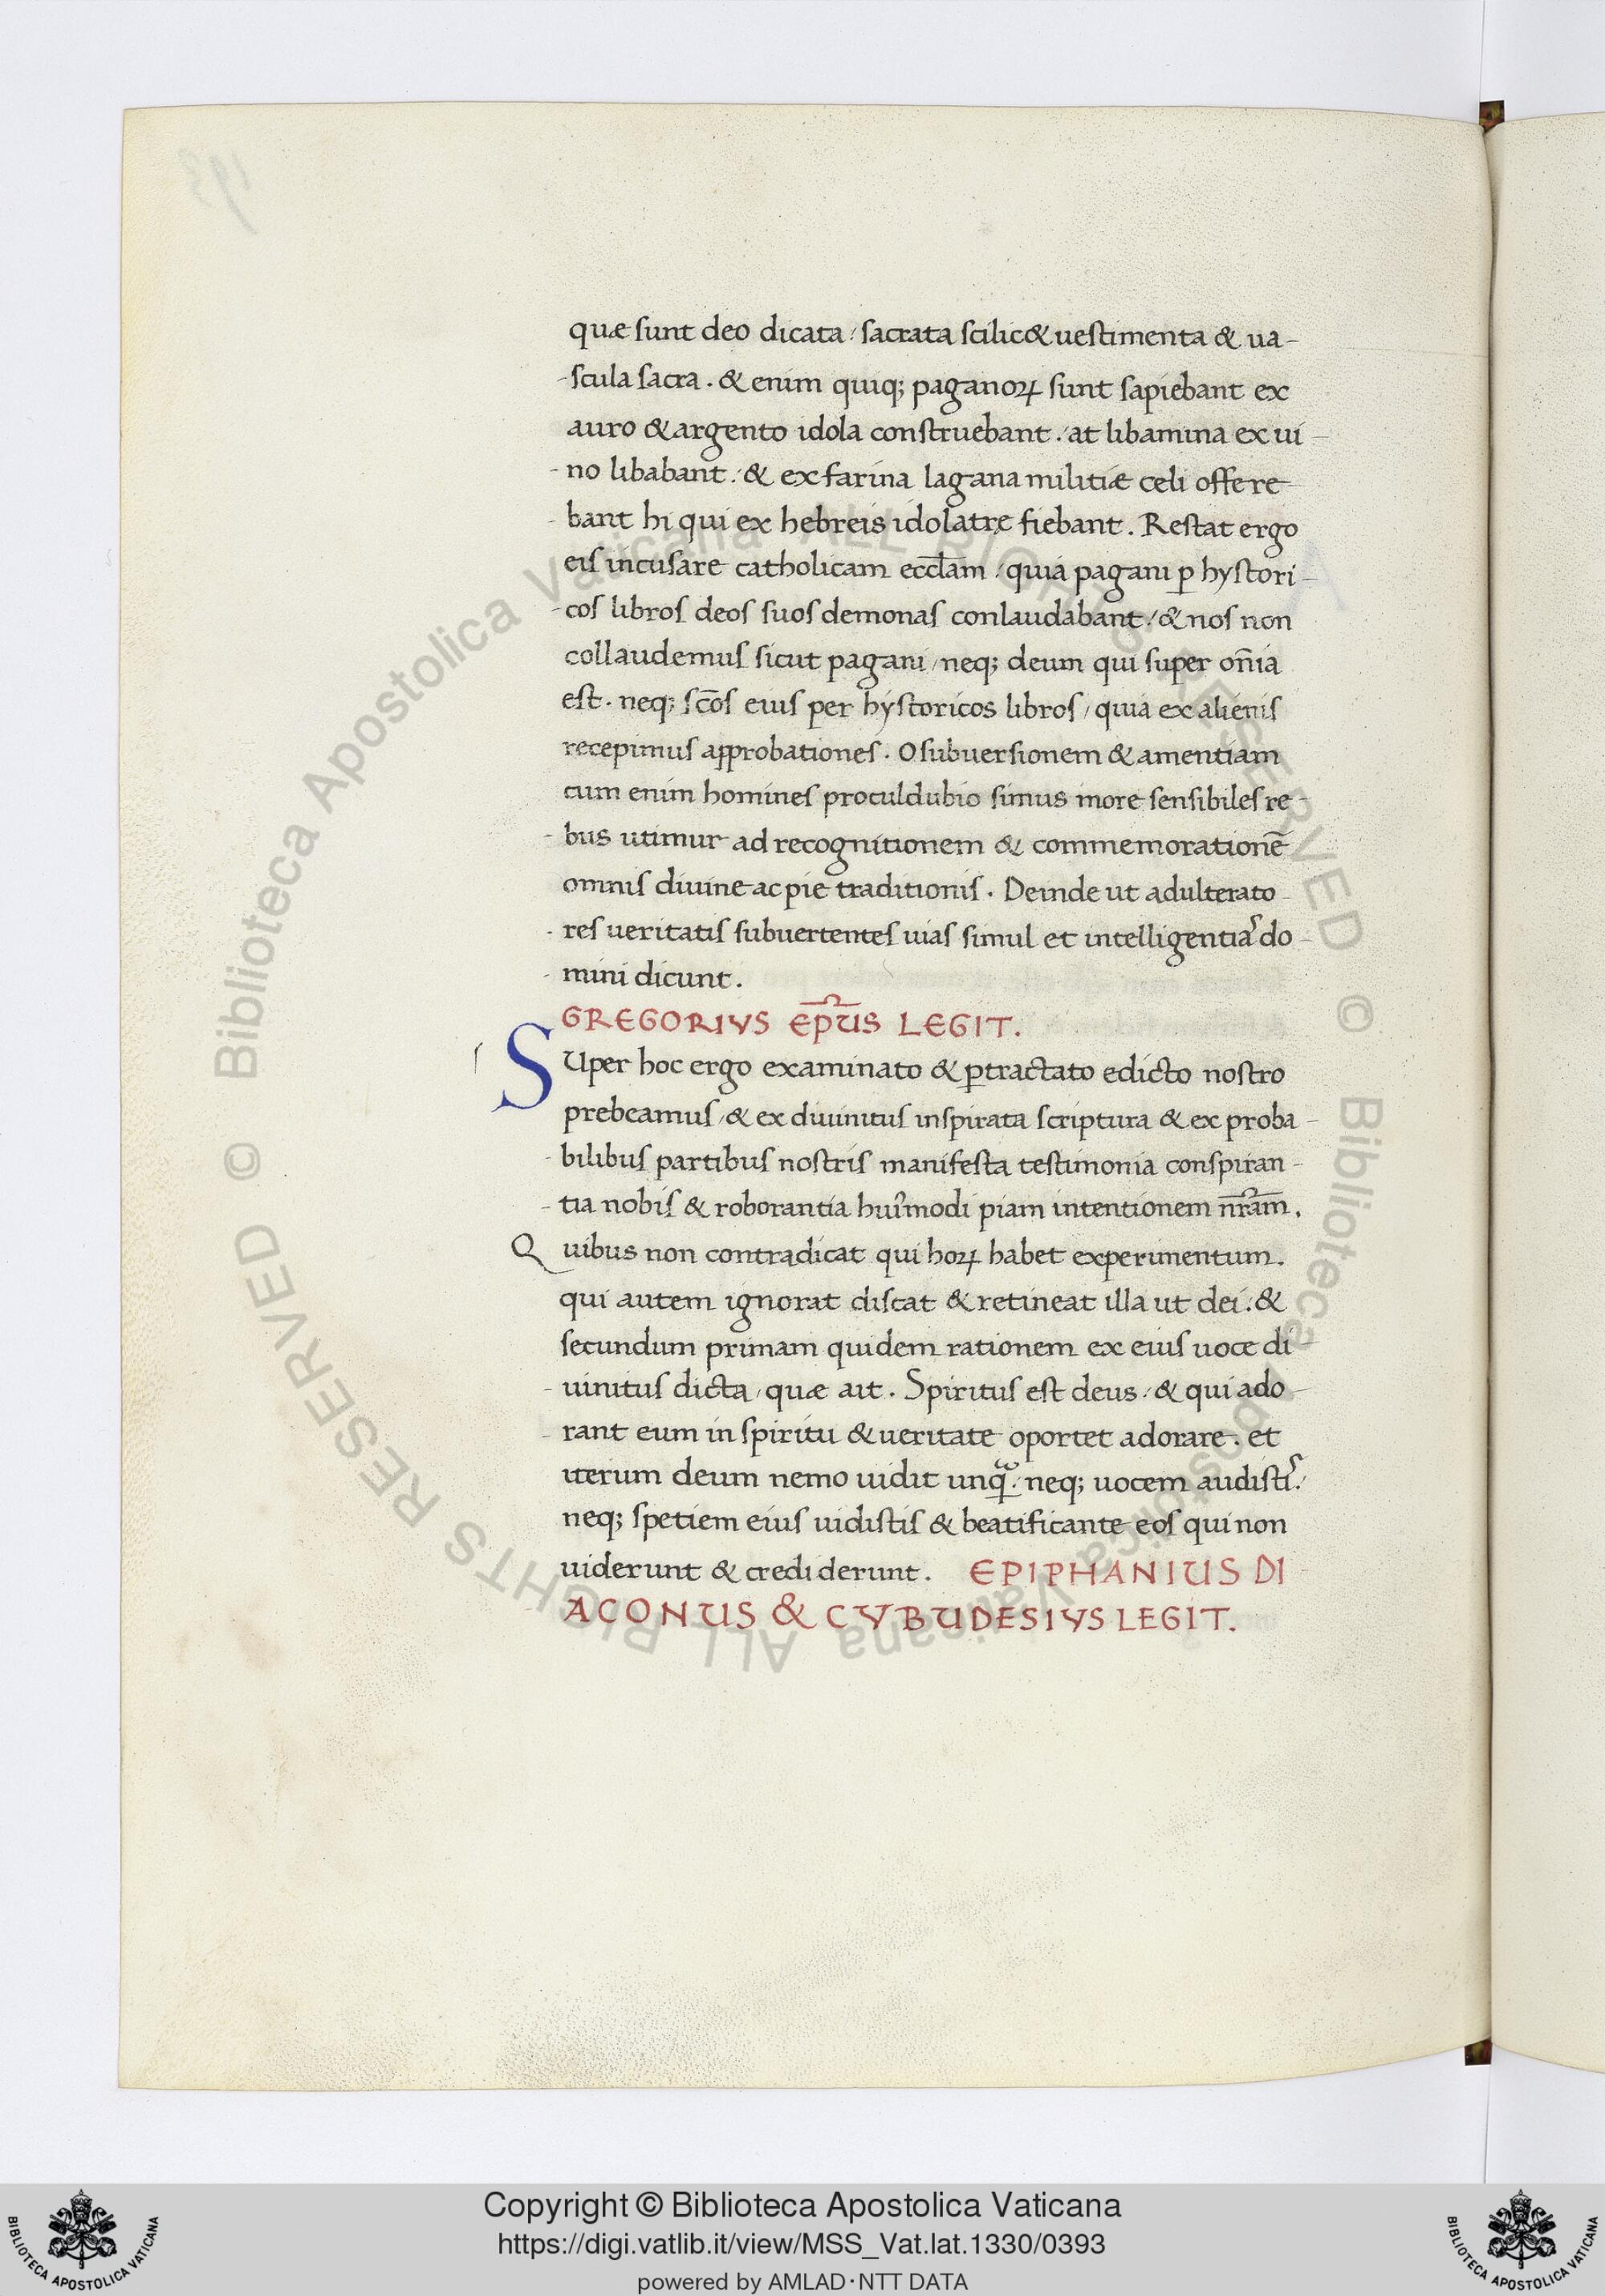 quæ sunt deo dicata / sacrata scilic& uestimenta & ua-
-scula sacra. & enim quiq; paganoꝝ sunt sapiebant ex
auro & argento idola construebant. / at libamina ex ui-
-no libabant. / & ex farina lagana militiæ celi offere-
-bant hi qui ex hebreis idolatrę fiebant. Restat ergo
eis incusare catholicam eccl̄am / quia pagani ꝑ hystori-
-cos libros deos suos demonas conlaudabant / & nos non
collaudemus sicut pagani / neq; deum qui super om̄ia
est. neq; sc̄os eius per hystoricos libros / quia ex alienis
recepimus approbationes. O subuersionem & amentiam
cum enim homines proculdubio simus more sensibiles re-
-bus utimur ad recognitionem & commemorationē
omnis diuine ac pie traditionis. Deinde ut adulterato-
-res ueritatis subuertentes uias simul et intelligentiaś do-
-mini dicunt.
GREGORIVS EP̄US LEGIT.
SUper hoc ergo examinato & ꝑtractato edicto nostro
prebeamus / & ex diuinitus inspirata scriptura & ex proba-
-bilibus partibus nostris manifesta testimonia conspiran-
-tia nobis & roborantia huīmodi piam intentionem nr̄am.
Quibus non contradicat qui hoꝝ habet experimentum.
qui autem ignorat discat & retineat illa ut dei. / &
secundum primam quidem rationem ex eius uoce di-
-uinitus dicta / quæ ait. Spiritus est deus / & qui ado-
-rant eum in spiritu & ueritate oportet adorare. et
iterum deum nemo uidit unq̄. / neq; uocem audistiˢ. /
neq; spetiem eius uidistis & beatificante eos qui non
uiderunt & crediderunt. EPIPHANIUS DI
ACONUS & CYBUDESIVS LEGIT.
© Biblioteca Apostolica Vaticana ALL RIGHTS RESERVED © Biblioteca Apostolica Vaticana ALL RIGHTS RESERVED
Copyright © Biblioteca Apostolica Vaticana
https://digi.vatlib.it/view/MSS_Vat.lat.1330/0393
powered by AMLAD·NTT DATA
BIBLIOTECA APOSTOLICA VATICANA
BIBLIOTECA APOSTOLICA VATICANA